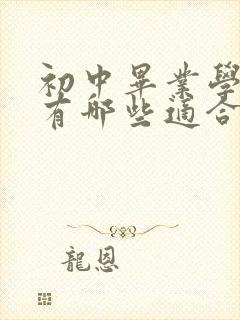 初中畢業學
有哪些適合
龍恩